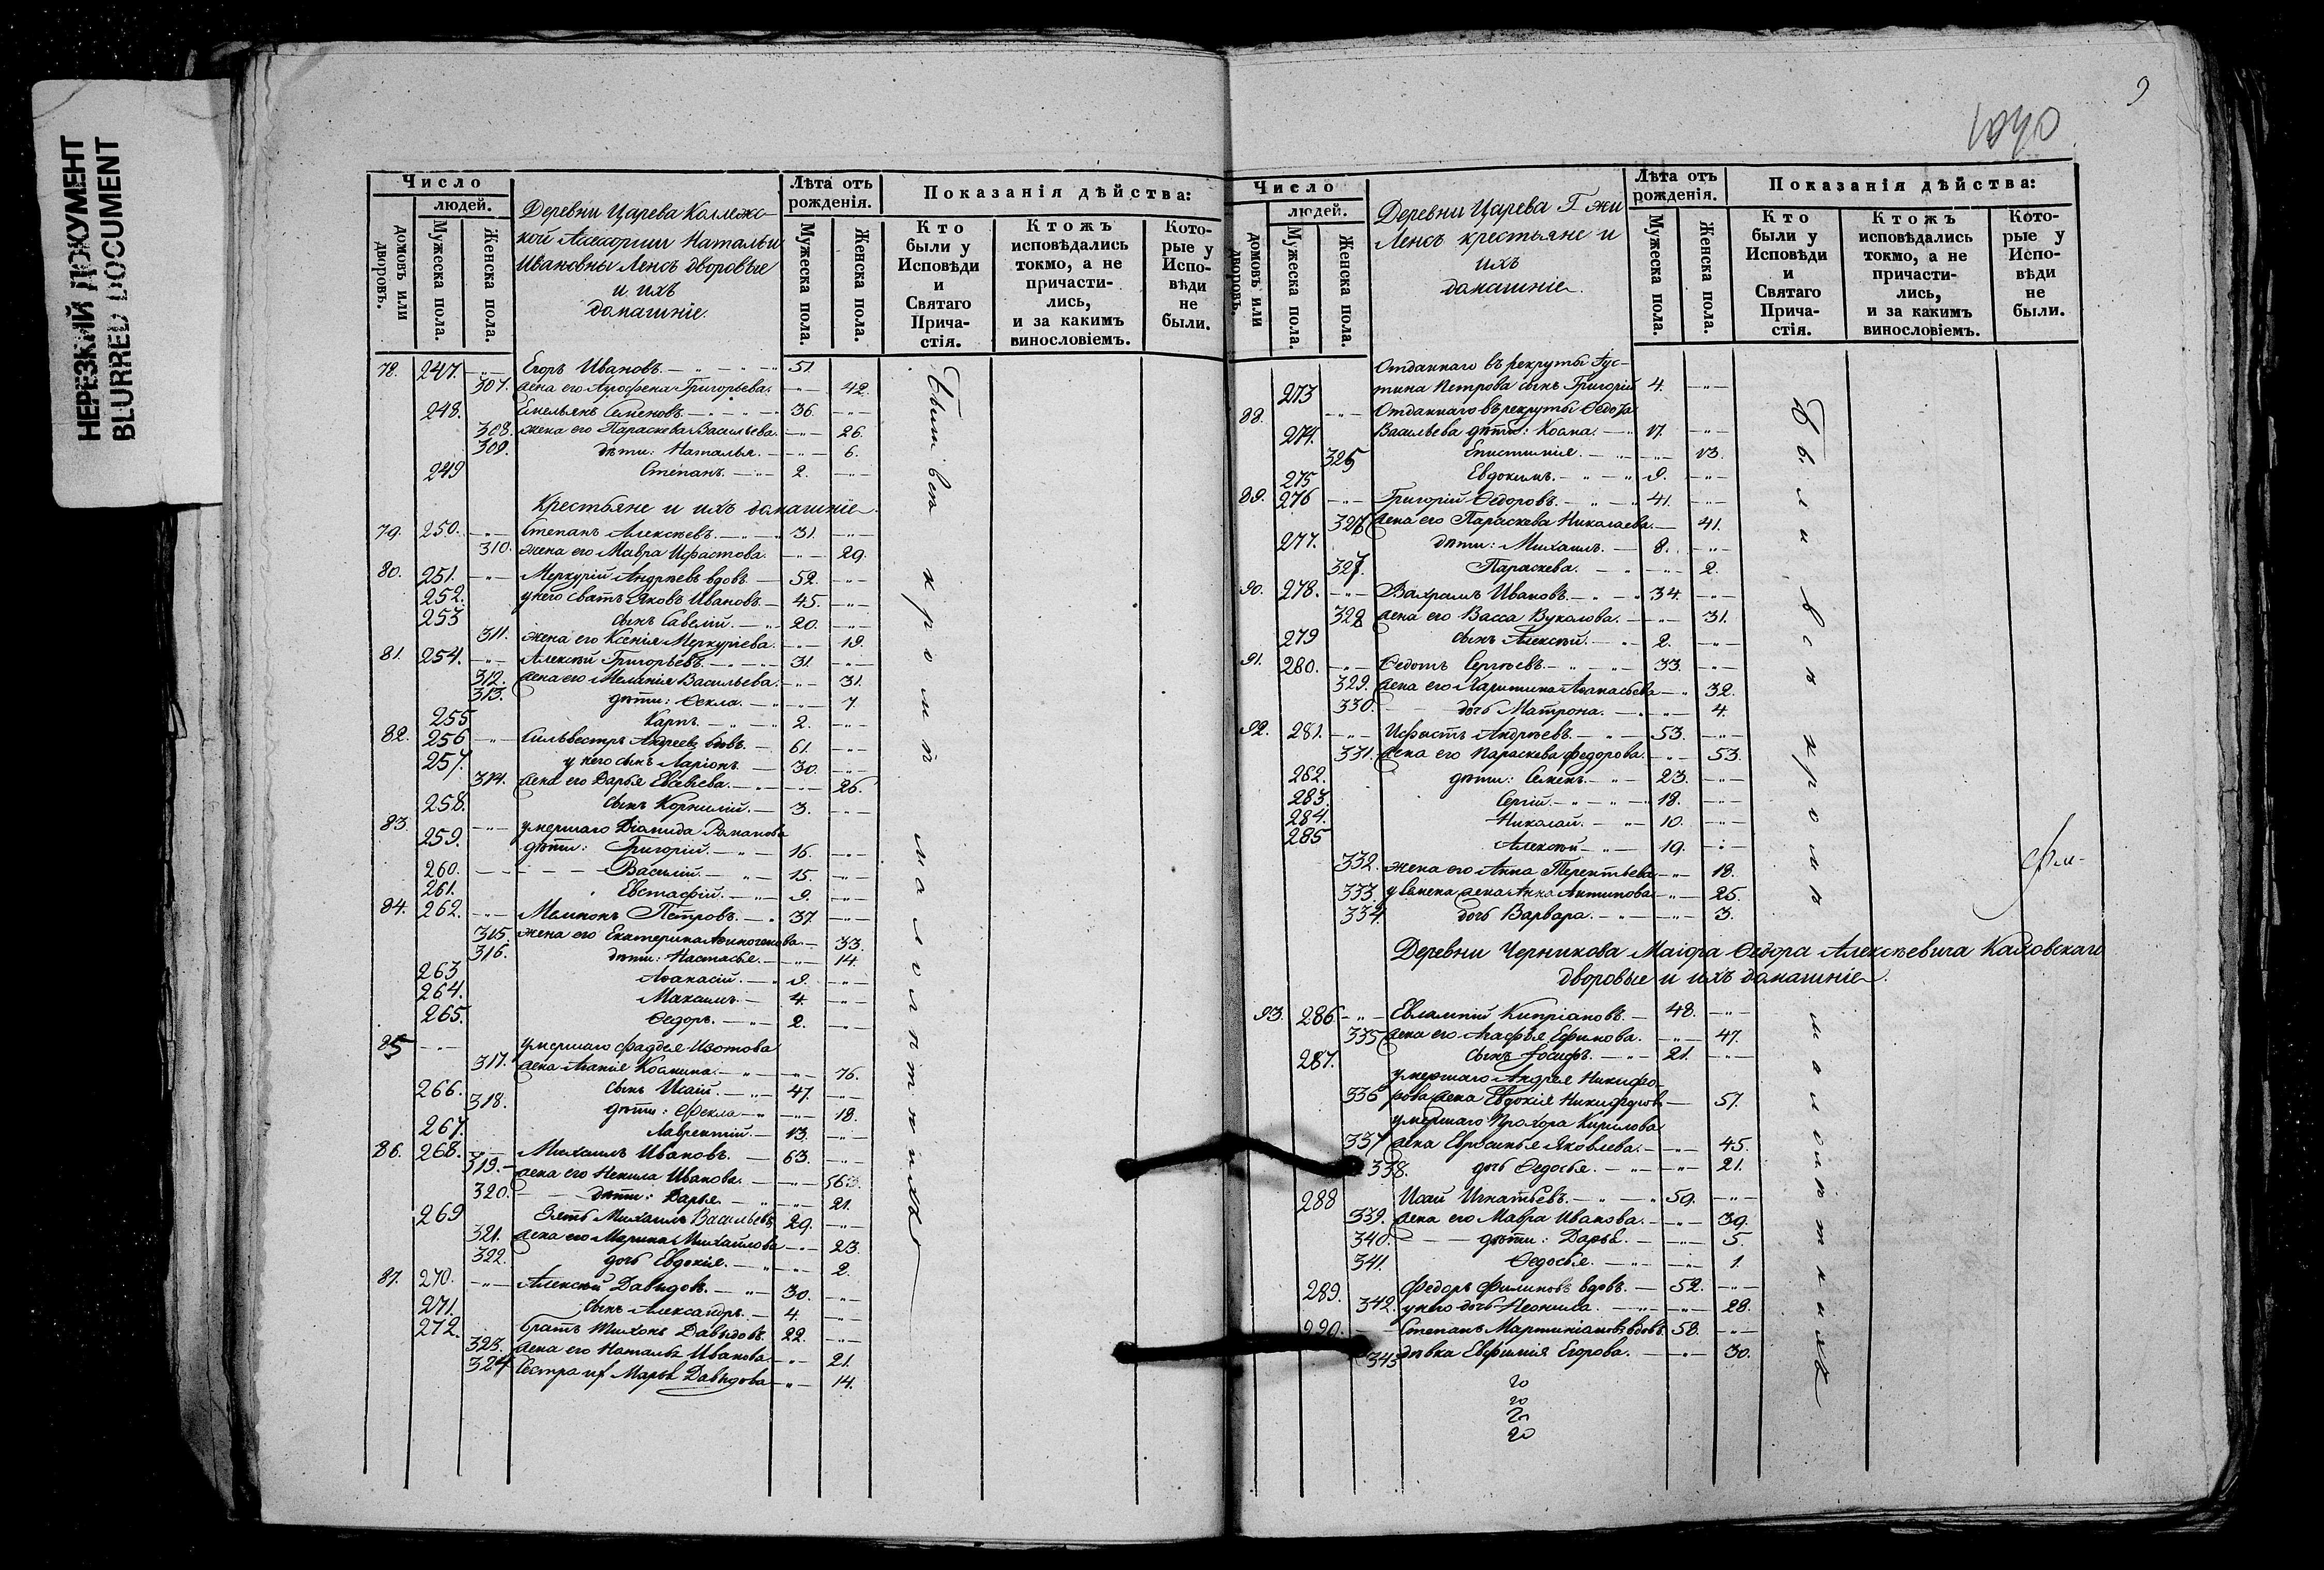 НЕРЕЗКИЙ ДОКУМЕНТ
BLURRED DOCUMENT
Число
людей.
домовъ или дворовъ.
Мужеска пола.
Женска пола.
Деревни Царева Коллежс-
кой Асессорши Натальи
Ивановны Ленсъ дворовые
и ихъ
домашніе.
Лѣта отъ рожденія.
Мужеска пола.
Женска пола.
Показанія дѣйства:
Кто были у Исповѣди и Святаго Прича-стія.
Ктожъ исповѣдались токмо, а не причасти-лись, и за какимъ винословіемъ.
Кото-рые у Испо-вѣди не были.
78. 247. Егоръ Ивановъ. 51.
307. жена его Агрофена Григорьева. 42.
248. Емельянъ Семеновъ. 36.
308. жена его Параскева Васильева. 26.
309. дѣти: Наталья. 6.
249 Степанъ. 2.
Крестьяне и ихъ домашніе.
79. 250. Степанъ Алексѣевъ. 31.
310. жена его Мавра Ифастова. 29.
80. 251. Меркурій Андреевъ вдовъ 52.
252. у него сватъ Яковъ Ивановъ. 45.
253 сынъ Савелій. 20.
311. жена его Ксенія Меркуріева. 19.
81. 254. Алексѣй Григорьевъ. 31.
312. жена его Меланія Васильева. 31.
313. дѣти: Ѳекла. 7.
255 Карпъ. 2.
82. 256 Сильвестръ Андреевъ вдовъ. 61.
257. у него сынъ Ларіонъ. 30.
314. жена его Дарья Евсѣева. 26.
258. сынъ Корнилій. 3.
83. умершаго Діомида Романова
259. дѣти: Григорій. 16.
260. Василій. 15.
261. Евстафій. 9.
84. 262. Мамнонъ Петровъ. 37
315. жена его Екатерина Аѳиногенова. 33.
316. дѣти: Настасья. 14.
263 Аѳанасій. 9.
264. Михаилъ. 4.
265. Ѳедоръ. 2.
85 умершаго Фаддея Изотова
317. жена Аѳанія Козмина. 76.
266. сынъ Исай. 47.
318. дѣти: Фекла 18.
267. Лаврентій. 13.
86. 268. Михаилъ Ивановъ. 63.
319. жена его Ненила Иванова. 563.
320. дѣти: Дарья. 21.
269 Зять Михаилъ Васильевъ 29.
321. жена его Марина Михайлова 23.
322. дочь Евдокія. 2.
87. 270. Алексѣй Давыдовъ. 30.
271. сынъ Александръ. 4.
272. братъ Тихонъ Давыдовъ. 22.
323. жена его Наталья Иванова. 21.
324 Сестра их Марья Давыдова 14.
Были всѣ кромѣ малолѣтнихъ
9
1040
Число
людей.
домовъ или дворовъ.
Мужеска пола.
Женска пола.
Деревни Царева Г жи
Ленсъ крестьяне и
ихъ
домашніе.
Лѣта отъ рожденія.
Мужеска пола.
Женска пола.
Показанія дѣйства:
Кто были у Исповѣди и Святаго Прича-стія.
Ктожъ исповѣдались токмо, а не причасти-лись, и за какимъ винословіемъ.
Кото-рые у Испо-вѣди не были.
Отданнаго въ рекруты Аус-
273 тина Петрова сынъ Григорій 4.
88. Отданнаго въ рекруты Ѳедота
274. Васильева дѣти: Козма. 17.
325 Епистимія. 13.
275 Евдокимъ. 9.
89. 276 Григорій Ѳедоровъ. 41.
326 жена его Параскева Николаева. 41.
277. дѣти: Михаилъ. 8.
327. Параскева. 2.
90. 278. Вахрамъ Ивановъ. 34.
328 жена его Васса Вуколова. 31.
279 сынъ Алексѣй. 2.
91. 280. Ѳедотъ Сергѣевъ. 33.
329. жена его Харитина Аѳанасьева 32.
330 дочь Матрона. 4.
92. 281. Ифастъ Андреевъ. 53.
331. жена его Параскева Федорова. 53.
282. дѣти: Семенъ. 23.
283. Сергій. 18.
284. Николай. 10.
285 Алексѣй 19.
332. жена его Анна Терентьева 18.
333. у Семена жена Анна Антипова 25.
334. дочь Варвара. 3.
Деревни Черникова Маіора Ѳедора Алексѣевича Кадовскаго
дворовые и ихъ домашніе.
93. 286 Евлампій Кипріановъ. 48.
335 жена его Агафья Ефимова. 47.
287. сынъ Іосифъ. 21.
умершаго Андрея Никифо-
336 рова жена Евдокія Никифорова 51.
умершаго Прохора Кирилова
337 жена Евросинья Яковлева. 45.
338. дочь Ѳедосья. 21.
288 Исай Игнатьевъ. 59.
339. жена его Мавра Иванова. 39.
340. дѣти: Дарья. 5.
341. Ѳедосья. 1.
289. Федоръ Филиповъ вдовъ. 52.
342. у него дочь Неонила. 28.
290. Степанъ Мартиніановъ вдовъ. 58.
343 дѣвка Евфимія Егорова. 30.
Были всѣ кромѣ малолѣтнихъ